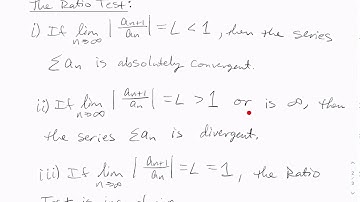 The Ratio Test:
i) If lim n→∞ | aₙ₊₁ / aₙ | = L < 1, then the series
Σaₙ is absolutely convergent.
ii) If lim n→∞ | aₙ₊₁ / aₙ | = L > 1 or is ∞, then
the series Σaₙ is divergent.
iii) If lim n→∞ | aₙ₊₁ / aₙ | = L = 1, the Ratio
Test is